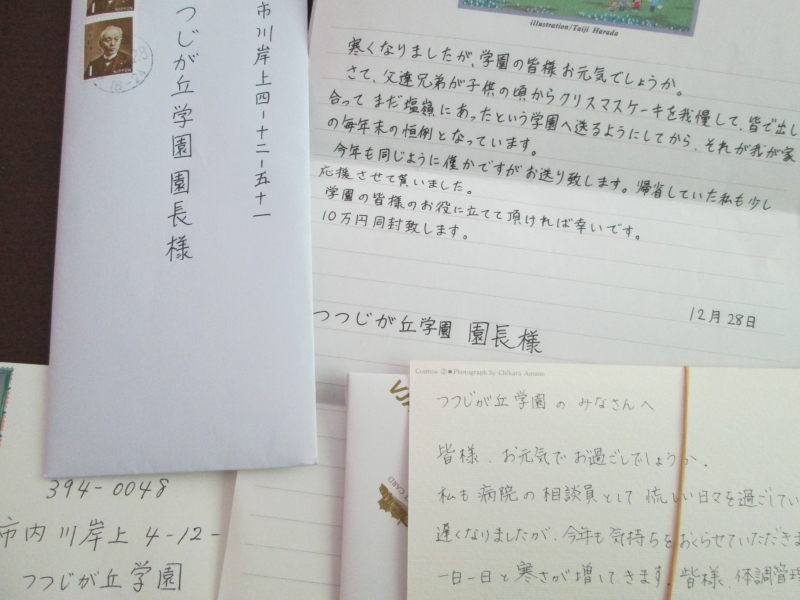 市川岸上四-十二-五十一
つつじが丘学園 園長様
NIPPON
illustration/Taiji Harada
寒くなりましたが、学園の皆様お元気でしょうか。
さて、父達兄弟が子供の頃からクリスマスケーキを我慢して、皆で出し
合って まだ塩嶺にあったという学園へ送るようにしてから、それが我が家
の毎年末の恒例となっています。
今年も同じように僅かですがお送り致します。帰省していた私も少し
応援させて貰いました。
学園の皆様のお役に立てて頂ければ幸いです。
10万円同封致します。
12月28日
つつじが丘学園 園長様
394-0048
市内 川岸上 4-12-
つつじが丘学園
Cosmos ②●Photograph by Chikara Amano
つつじが丘学園の みなさんへ
皆様、お元気でお過ごしでしょうか。
私も病院の相談員として 慌しい日々を過ごしてい
遅くなりましたが、今年も気持ちをおくらせていただきま
一日一日と寒さが増してきます。皆様、体調管理